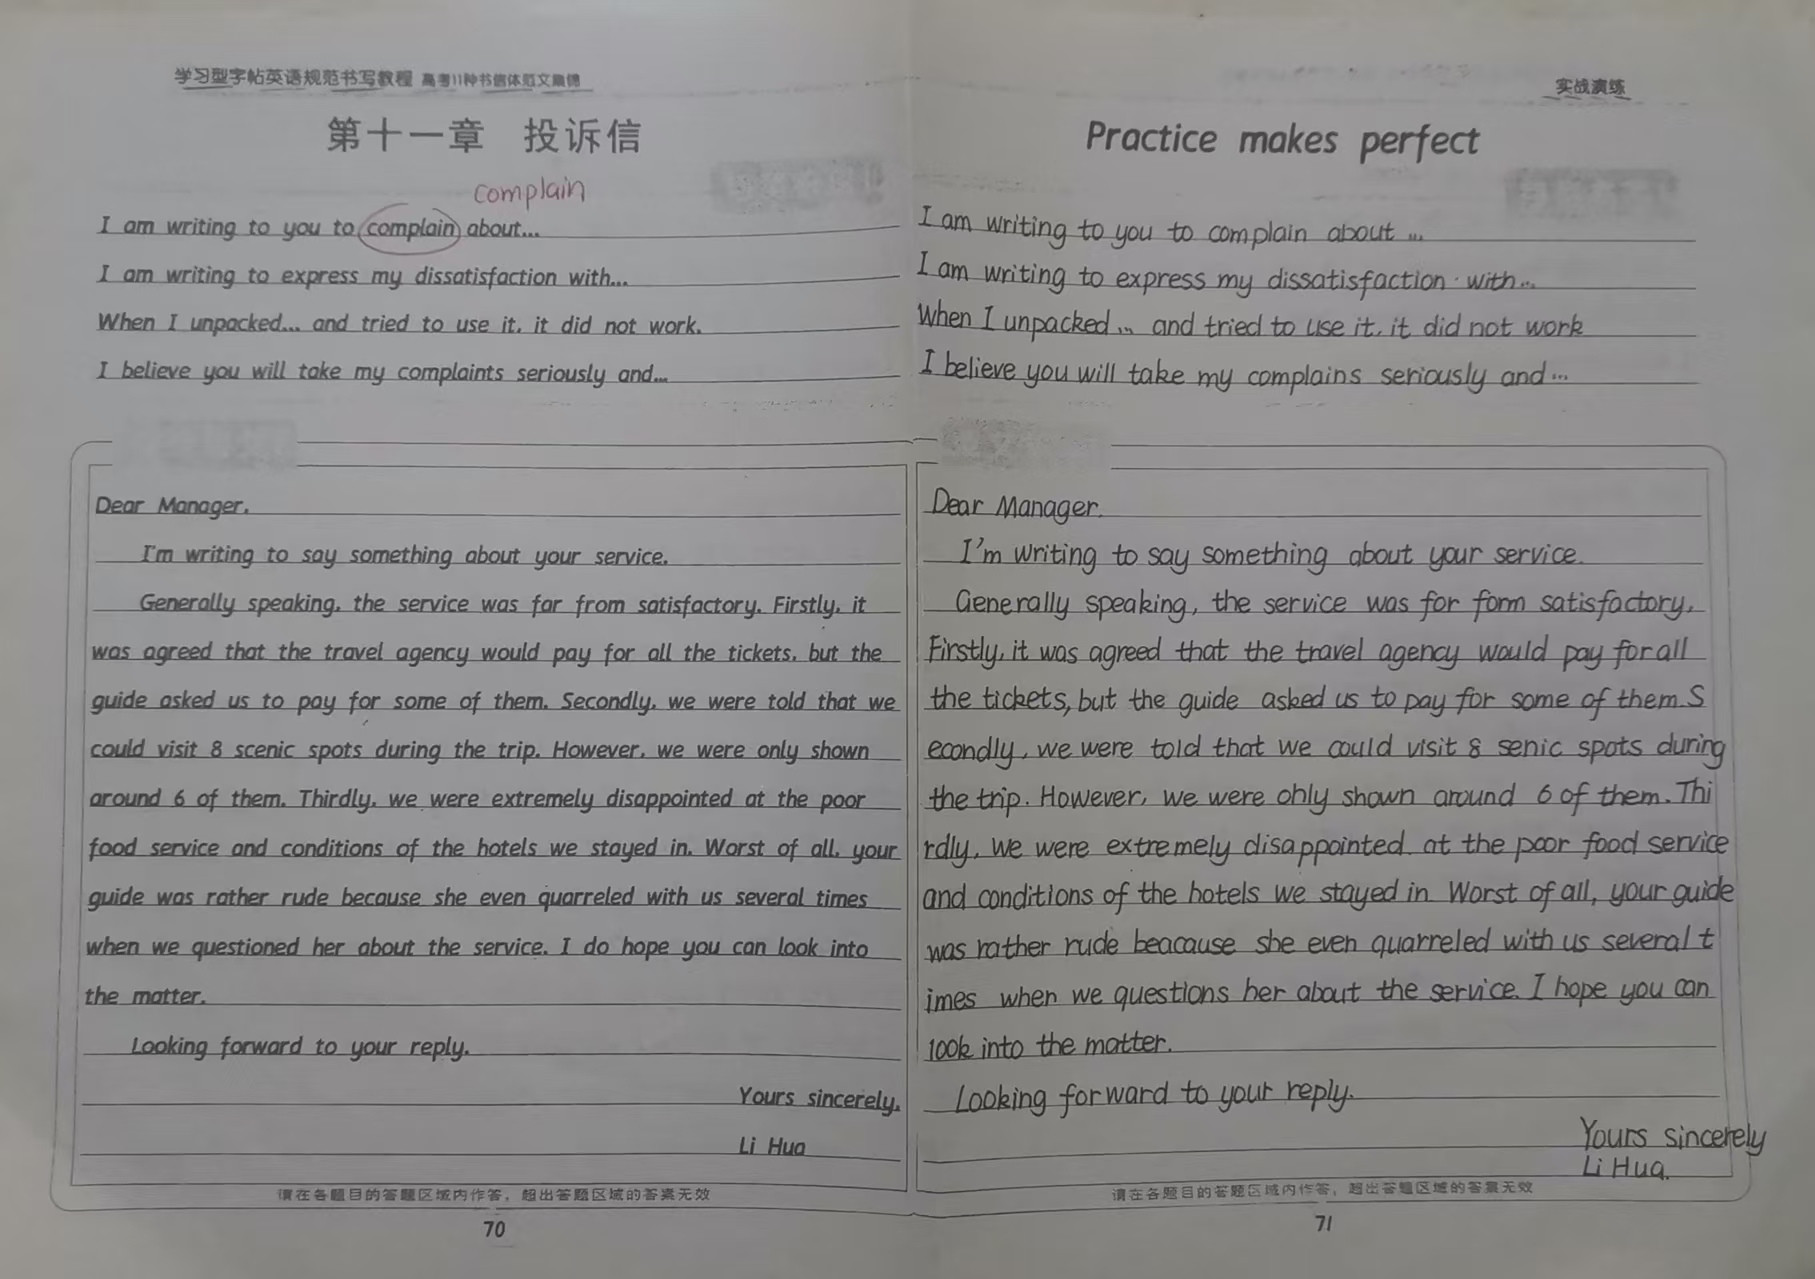 学习型字帖英语规范书写教程 高考11种书信体范文临傅
第十一章 投诉信
complain
I am writing to you to complain about...
I am writing to express my dissatisfaction with...
When I unpacked... and tried to use it, it did not work.
I believe you will take my complaints seriously and...
Dear Manager,
I'm writing to say something about your service.
Generally speaking, the service was far from satisfactory. Firstly, it
was agreed that the travel agency would pay for all the tickets, but the
guide asked us to pay for some of them. Secondly, we were told that we
could visit 8 scenic spots during the trip. However, we were only shown
around 6 of them. Thirdly, we were extremely disappointed at the poor
food service and conditions of the hotels we stayed in. Worst of all, your
guide was rather rude because she even quarreled with us several times
when we questioned her about the service. I do hope you can look into
the matter.
Looking forward to your reply.
Yours sincerely,
Li Hua
请在各题目的答题区域内作答，超出答题区域的答案无效
70
实战演练
Practice makes perfect
I am writing to you to complain about ...
I am writing to express my dissatisfaction with...
When I unpacked ... and tried to use it, it did not work
I believe you will take my complains seriously and ...
Dear Manager.
I'm writing to say something about your service.
Generally speaking, the service was for form satisfactory.
Firstly, it was agreed that the travel agency would pay for all
the tickets, but the guide asked us to pay for some of them. S
econdly, we were told that we could visit 8 senic spots during
the trip. However, we were only shown around 6 of them. Thi
rdly, we were extremely disappointed at the poor food service
and conditions of the hotels we stayed in. Worst of all, your guide
was rather rude beacause she even quarreled with us several t
imes when we questions her about the service. I hope you can
look into the matter.
Looking forward to your reply.
Yours sincerely
Li Hua.
请在各题目的答题区域内作答，超出答题区域的答案无效
71